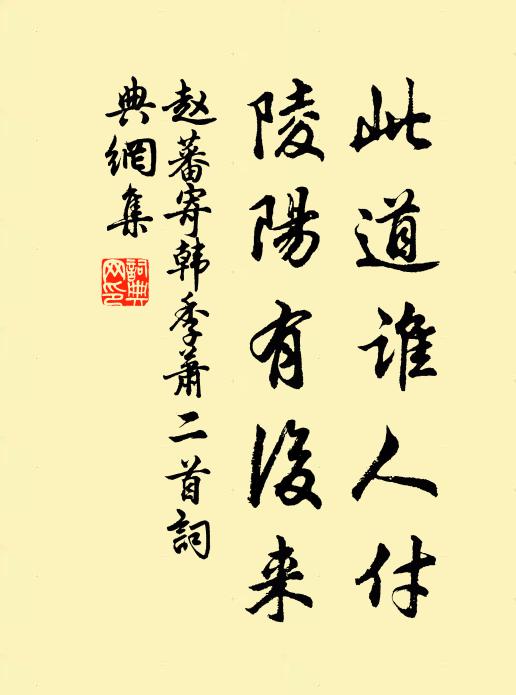 此道谁人付
陵陽有後来
赵蕃寄韩季萧二首詞
典網集
詞典网印